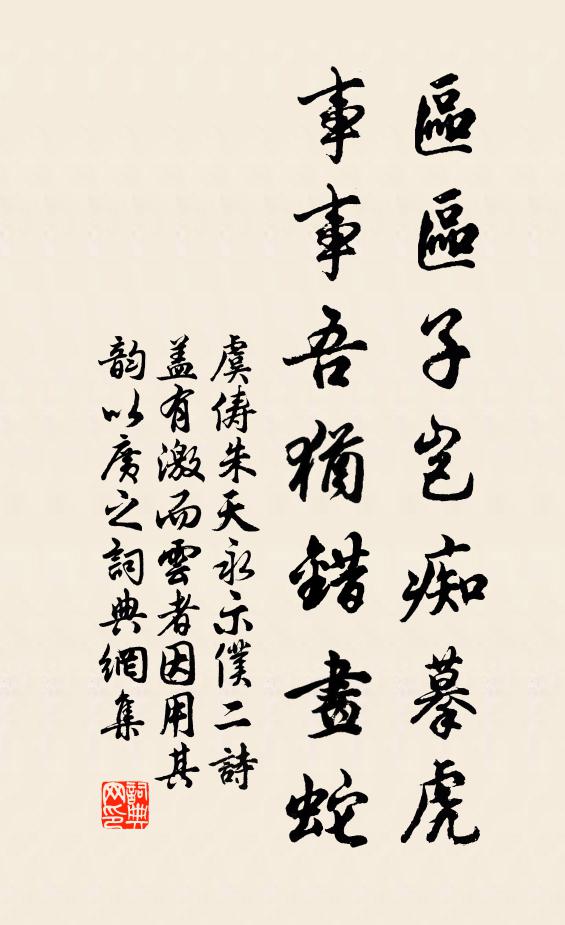 區區子豈痴摹虎
事事吾猶錯畫蛇
虞俦朱天永示僕二詩
盖有激而雲者因用其
韵以广之詞典網集
詞典网印